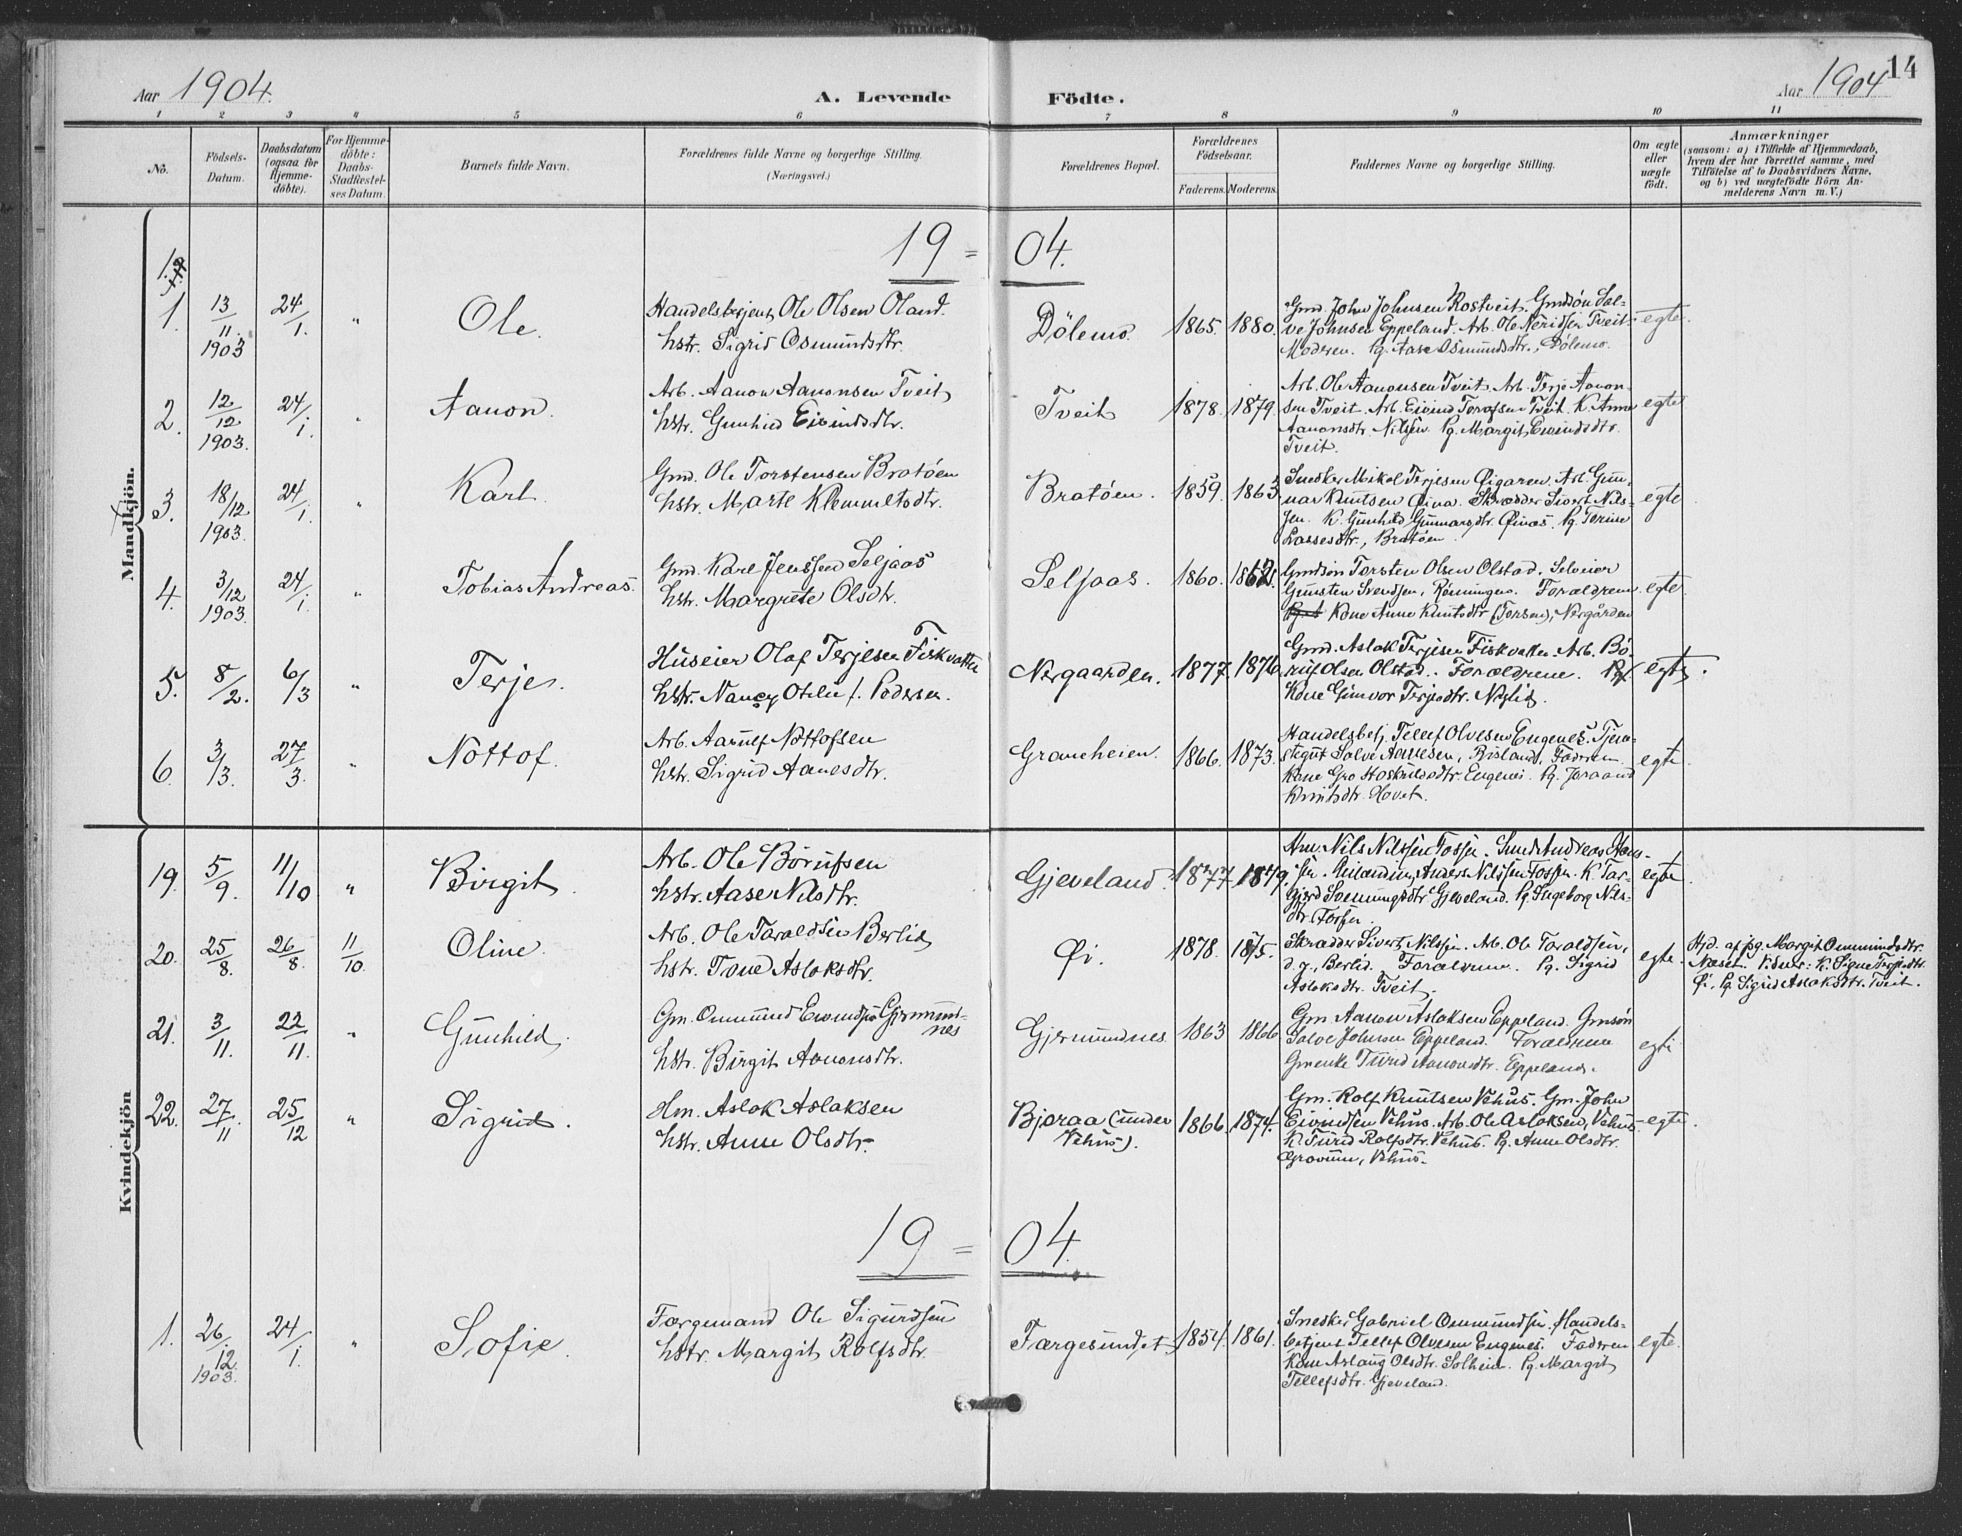 Aar 1904.
A. Levende
Födte.
Aar 1904
14
1 2 3 4 5 6 7 8 9 10 11
No.
Födsels-
Datum.
Daabsdatum
(ogsaa for
Hjemme-
döbte).
For Hjemme-
döbte:
Daabs-
Stadfestel-
ses Datum.
Barnets fulde Navn.
Forældrenes fulde Navne og borgerlige Stilling.
(Næringsvei.)
Forældrenes Bopæl.
Forældrenes
Födselsaar.
Faderens. Moderens.
Faddernes Navne og borgerlige Stilling.
Om ægte
eller
uægte
födt.
Anmærkninger
(saasom: a) i Tilfælde af Hjemmedaab,
hvem der har forrettet samme, med
Tilföielse af to Daabsvidners Navne,
og b) ved uægtefödte Börn An-
melderens Navn m. V.)
Mandkjön.
19 = 04.
1. 13/11. 1903 24/1. " Ole.
Handelsbetjent Ole Olsen Oland.
hstr. Sigrid Osmundsdtr.
Dölemo. 1865. 1880.
Gmd. John Johnsen Rostveit, Gmdsön Sal-
ve Johnsen Eppeland. Arb. Ole Neridsen Tveit.
Moderen. Pg. Aase Osmundsdtr., Dölemo.
egte.
2. 12/12 1903. 24/1. " Aanon.
Arb. Aanon Aanonsen Tveit,
hstr. Gunhild Eivindsdtr.
Tveit 1878. 1879.
Arb. Ole Aanonsen Tveit, Arb. Terje Aanon-
sen Tveit. Arb. Eivind Torafsen Tveit. K. Anne
Aanonsdtr. Nilsen. Pg. Margit Eivindsdtr.
Tveit.
egte
3. 18/12 1903. 24/1. " Karl.
Gmd. Ole Torstensen Bratöen
hstr. Marte Klemmetsdtr.
Bratöen. 1859. 1863.
Snedker Mikel Terjesen Öigaren. Arb. Gun-
nar Knutsen Öina. Skrædder Sivert Nils-
sen. K. Gunhild Gunnarsdtr. Öinas. Pg. Terine
Lassesdtr., Bratöen.
egte
4. 3/12 1903. 24/1. " Tobias Andreas.
Gmd. Karl Jenssen Seljaas
hstr. Margrete Olsdtr.
Seljaas. 1860.
Gmdsön Torsten Olsen Olstad. Selveier
Gunsten Svendsen, Rönningen. Forældrene.
Kone Anne Knutsdtr. (Tonsen), Nergården
egte.
5. 8/2. 6/3 " Terje.
Huseier Olaf Terjesen Fiskvatten
hstr. Nancy Otilie f. Pedersen.
Nergaarden. 1877. 1876.
Gmd. Aslak Terjesen Fiskvatten. Arb. Bö-
rulf Olsen Olstad. Forældrene.
Kone Gunvor Terjesdtr. Nylid.
egte.
6. 3/3. 27/3. " Nottof.
Arb. Aanulf Nottofsen
hstr. Sigrid Aanesdtr.
Graneheien. 1866. 1873.
Handelsbetj. Tellef Olvesen Engenes. Tjen-
stegut Salve Aanesen, Risland, Faderen
Kone Gro Hoskuldsdtr. Engenes. Pg. Joraand
Knutsdtr. Hovet.
egte.
Kvindekjön
19. 5/9. 11/10 " Birgit.
Arb. Ole Börufsen
hstr. Aase Nilsdtr.
Gjeveland. 1877. 1879.
Hm. Nils Nilssen Fossen. Smed Andreas Han-
sen. Anders Nilssen Fossen. K. Tar-
gjerd Sveinungsdtr Gjeveland. Pg. Ingeborg Nils-
dtr. Fossen.
egte
20. 25/8. 26/8. 11/10. Oline.
Arb. Ole Taraldsen Berlid,
hstr. Tone Aslaksdtr.
Öi. 1878. 1875.
Skrædder Sivert Nilssen. Arb. Ole Taraldsen,
d. y., Berlid. Forældrene. Pg. Sigrid
Aslaksdtr. Tveit.
egte.
Hjd. af jpg. Margit Ommundsdtr.
Næset. Vidner: K. Signe Terjesdtr.
Öi, Pg. Sigrid Aslaksdtr. Tveit.
21. 3/11. 22/11. " Gunhild.
Gm. Ommund Eivindsen Gjermund-
nes
hstr. Birgit Aanonsdtr.
Gjermundnes 1863 1866
Gm. Aanon Aslaksen Eppeland. Gmsön
Salve Johnsen Eppeland. Forældrene
Gmenke Turid Aanonsdtr. Eppeland.
egte
22. 27/11. 25/12 " Sigrid.
Hm. Aslak Aslaksen
hstr. Anne Olsdtr.
Bjoraa (under
Vehus). 1866. 1874.
Gm. Rolf Knutsen Vehus. Gm. John
Eivindsen Vehus. Arb. Ole Aslaksen, Vehus.
K. Turid Rolfsdtr. Vehus. Pg. Anne Olsdtr.
Grovum, Vehus.
egte.
19 = 04.
1. 26/12. 1903. 24/1. " Sofie.
Færgemand Ole Sigurdsen
hstr. Margit Rolfsdtr.
Færgesundet. 1854. 1861.
Snedker Gabriel Ommundsen. Handels-
betjent Tellef Olvesen Engenes. Faderen
Kone Aslaug Olsdtr. Solheim. Pg. Margit
Tellefsdtr. Gjeveland.
egte.